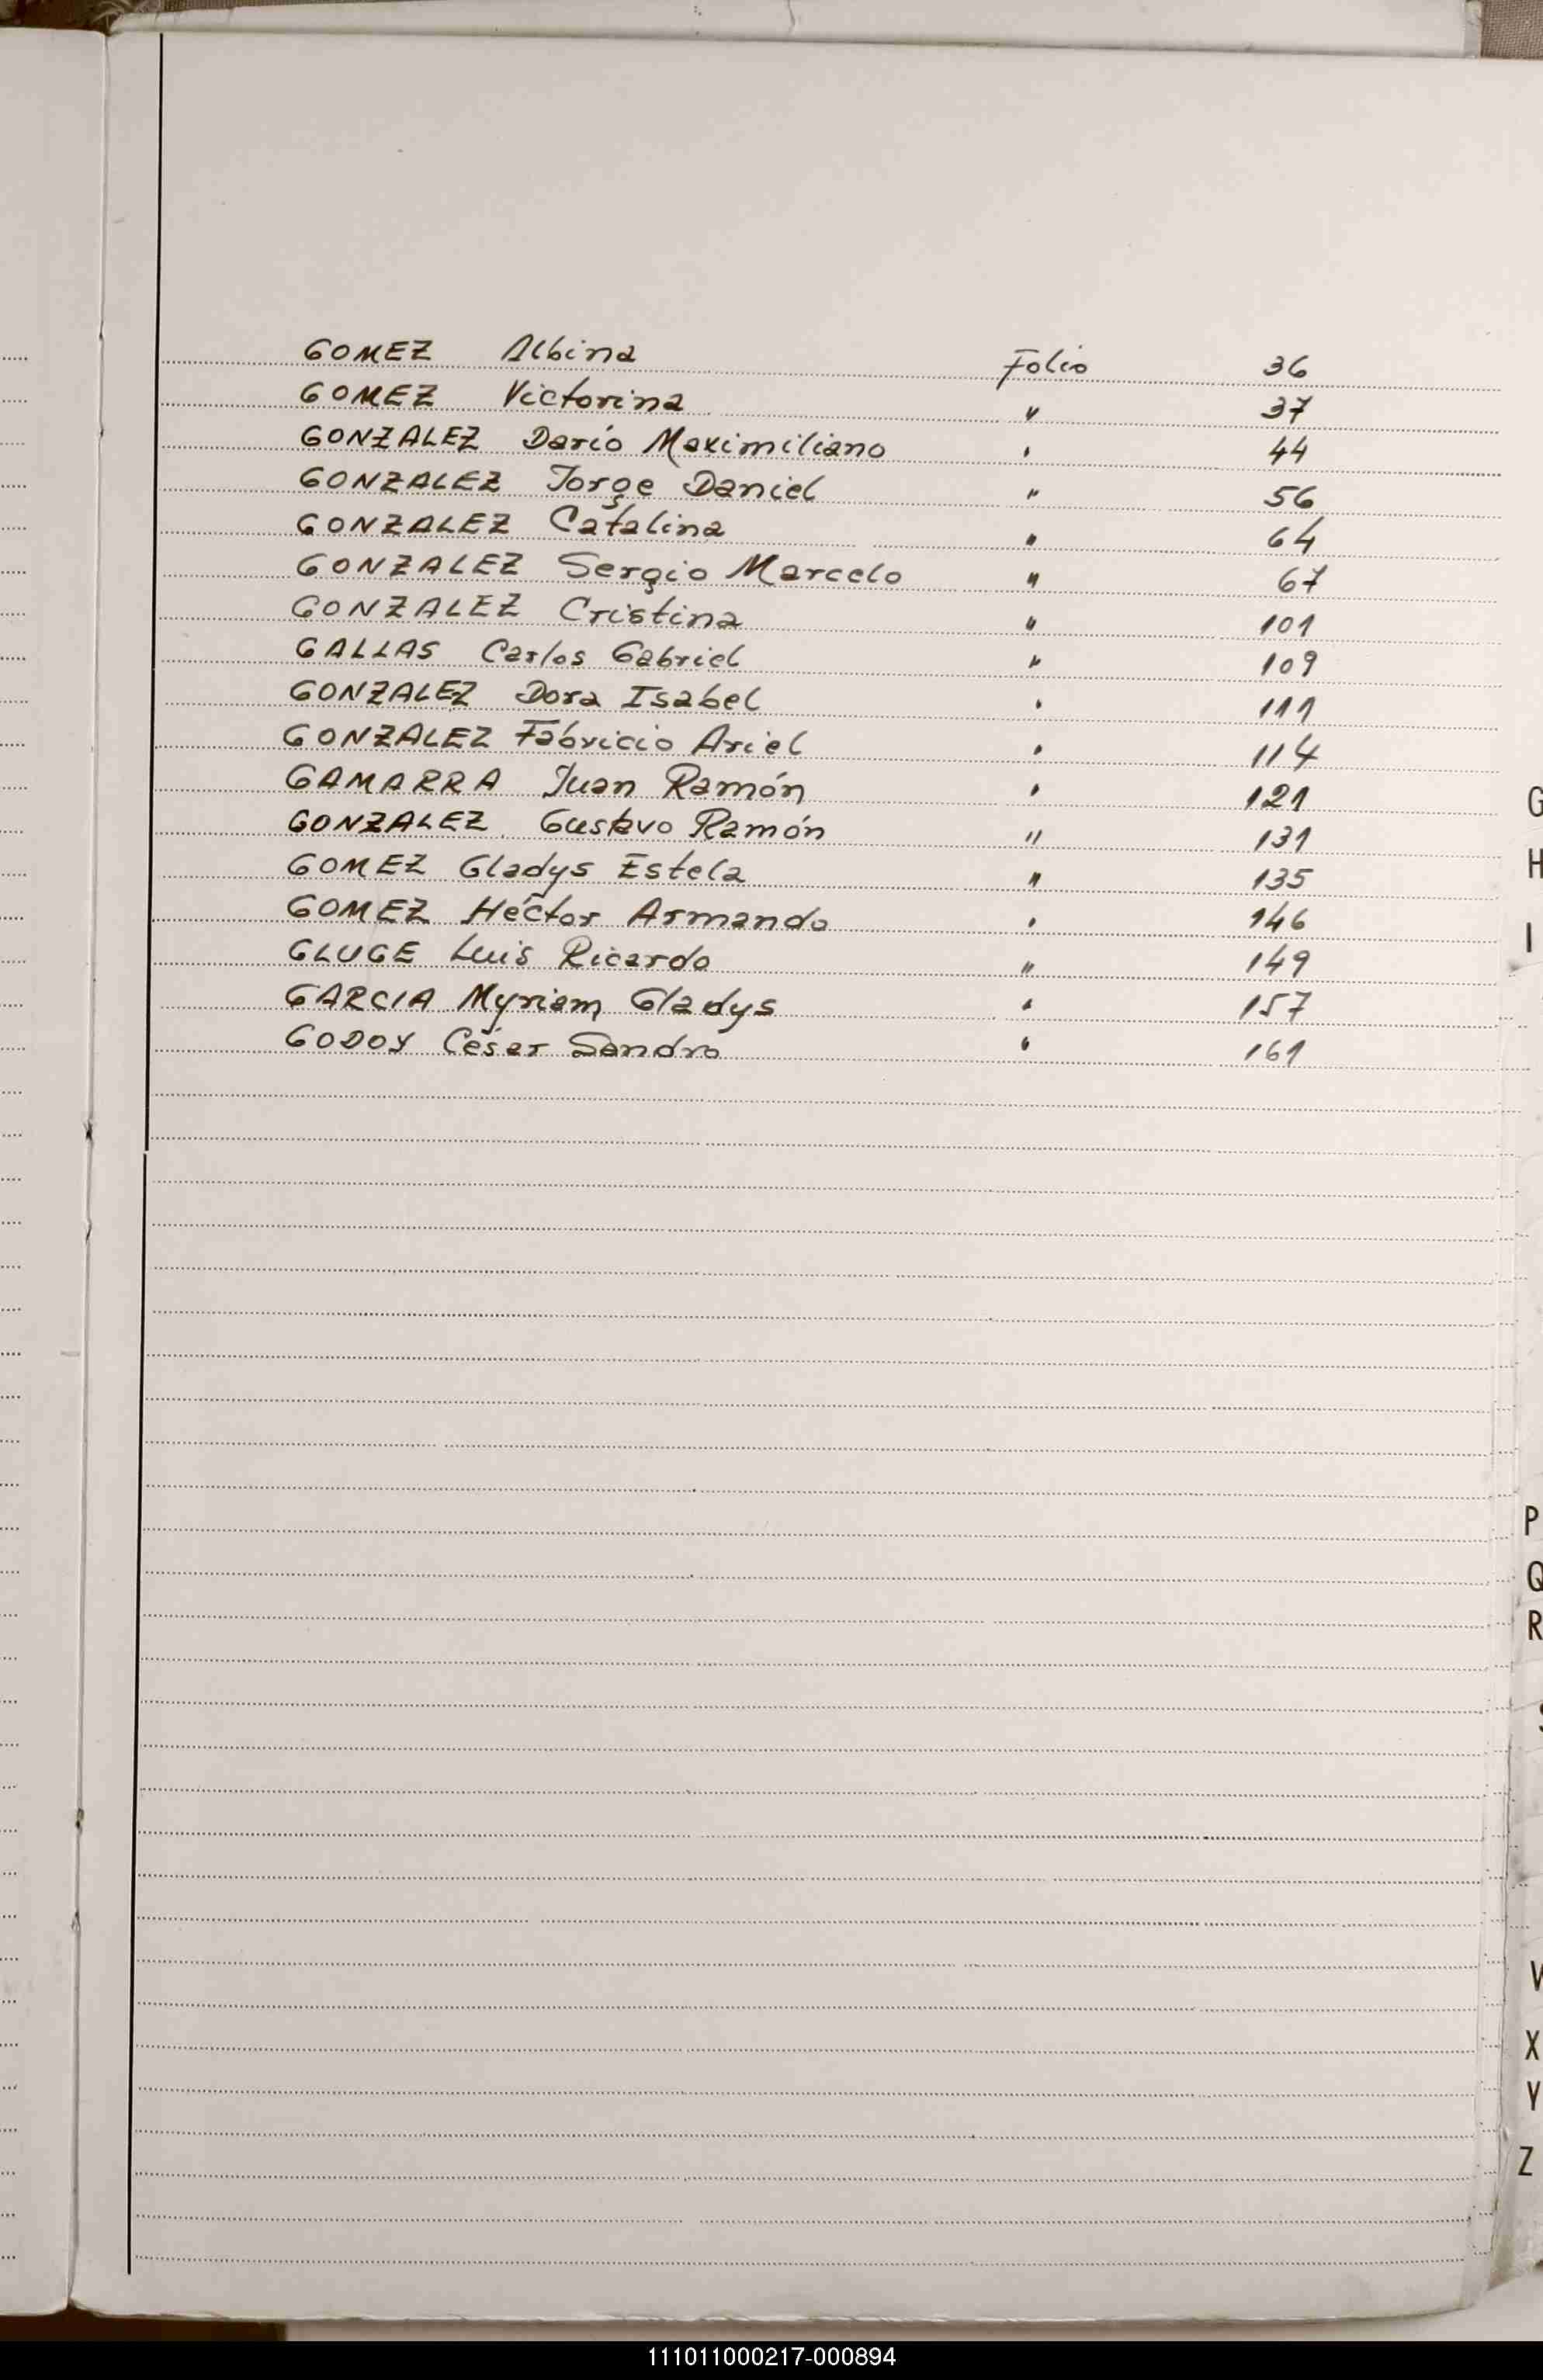 GOMEZ Albina Folio 36
GOMEZ Victorina " 37
GONZALEZ Darío Maximiliano " 44
GONZALEZ Jorge Daniel " 56
GONZALEZ Catalina " 64
GONZALEZ Sergio Marcelo " 67
GONZALEZ Cristina " 101
GALLAS Carlos Gabriel " 109
GONZALEZ Dora Isabel " 111
GONZALEZ Fabricio Ariel " 114
GAMARRA Juan Ramón " 121
GONZALEZ Gustavo Ramón " 131
GOMEZ Gladys Estela " 135
GOMEZ Héctor Armando " 146
GLUGE Luis Ricardo " 149
GARCIA Myriam Gladys " 157
GODOY César Sandro " 161
G
H
I
P
Q
R
S
V
X
Y
Z
111011000217-000894